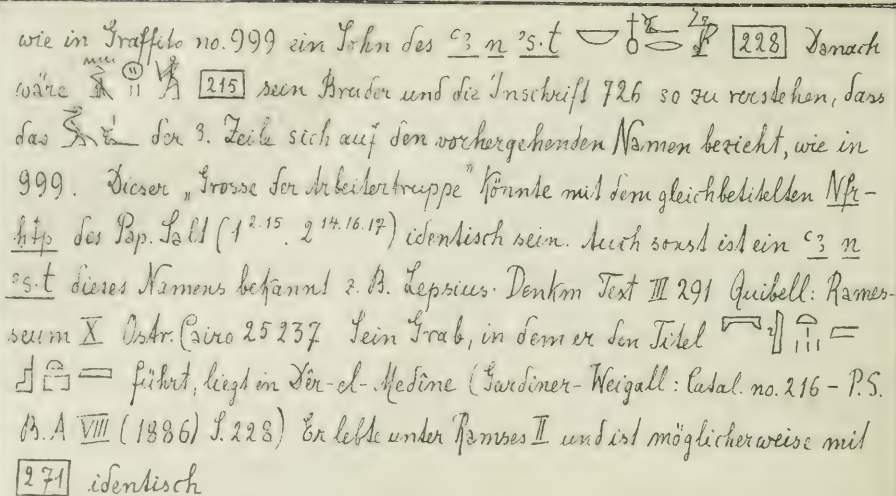 wie in Graffito no. 999 ein Sohn des ꜥꜣ n ꜣs.t [228] Danach
wäre [215] sein Bruder und die Inschrift 726 so zu verstehen, dass
das der 3. Zeile sich auf den vorhergehenden Namen bezieht, wie in
999. Dieser „Grosse der Arbeitertruppe" könnte mit dem gleichbetitelten Nfr-
ḥtp des Pap. Salt (1 2.15. 2 14.16.17) identisch sein. Auch sonst ist ein ꜥꜣ n
ꜣs.t dieses Namens bekannt z. B. Lepsius. Denkm Text III 291 Quibell: Rames-
seum X Ostr. Cairo 25237 Sein Grab, in dem er den Titel
führt, liegt in Dêr-el-Medîne (Gardiner-Weigall: Catal. no. 216 – P.S.
B.A VIII (1886) S. 228) Er lebte unter Ramses II und ist möglicherweise mit
[271] identisch